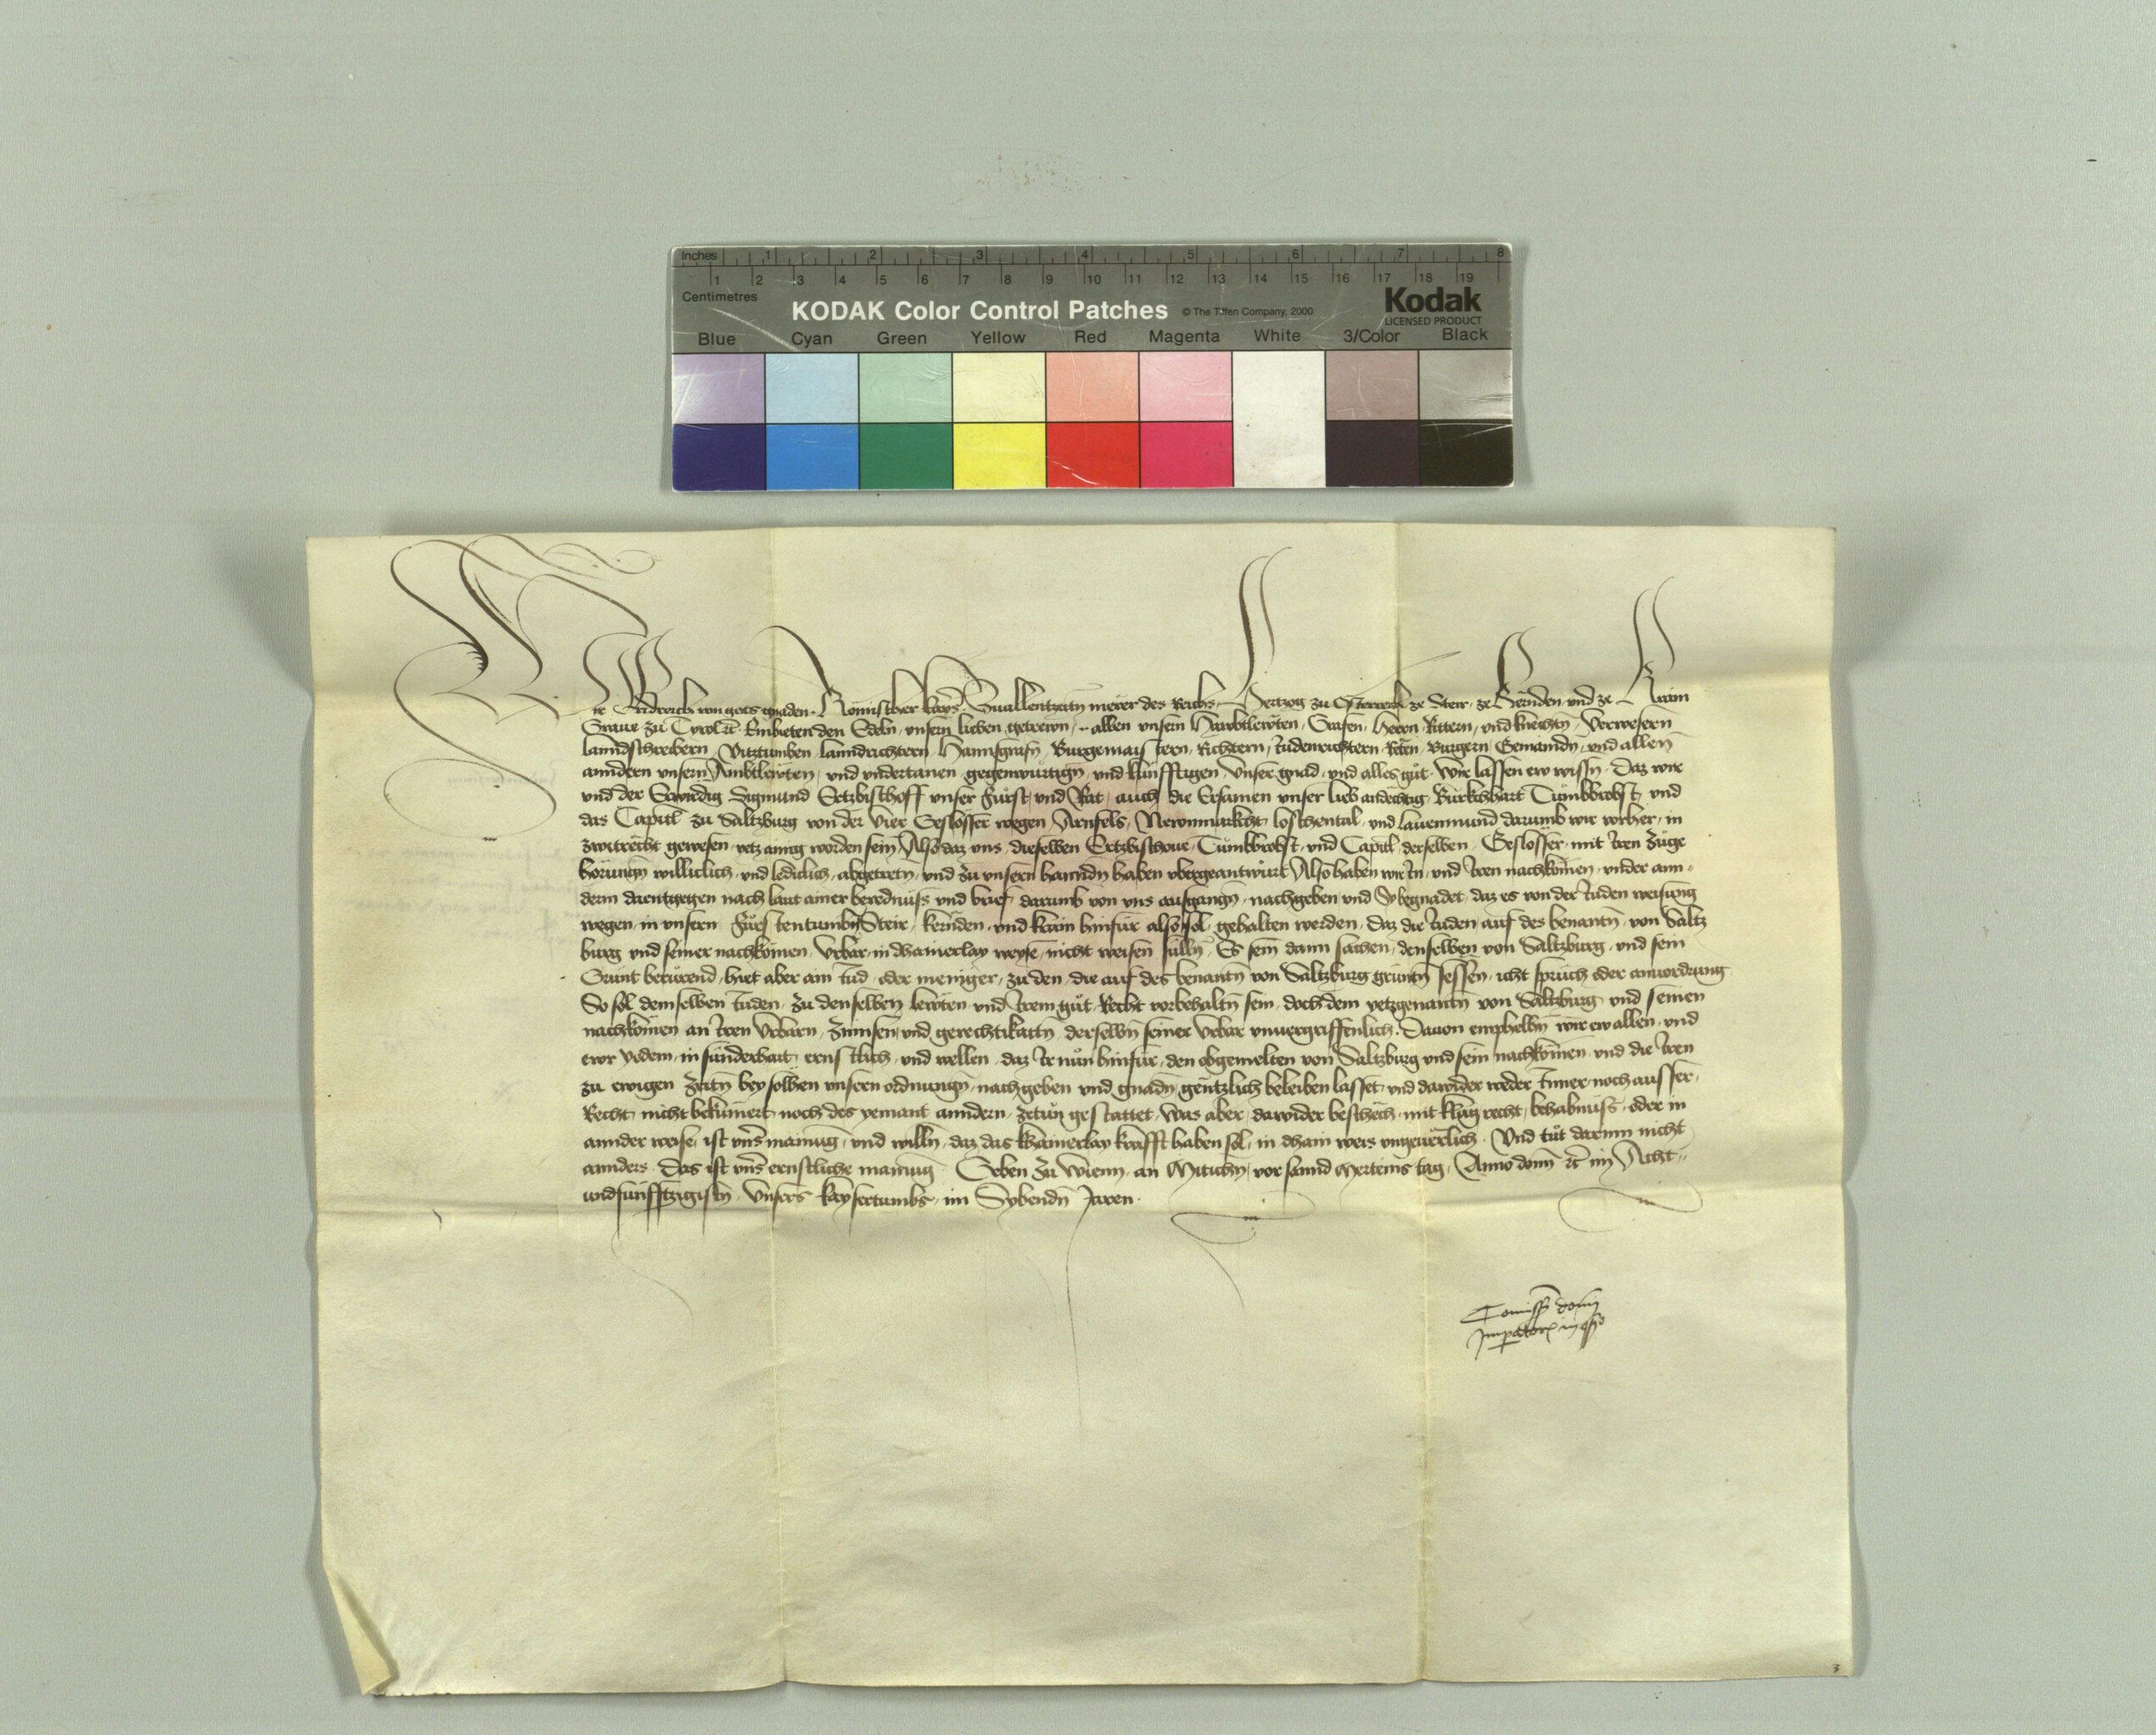 Inches 1 2 3 4 5 6 7 8
1 2 3 4 5 6 7 8 9 10 11 12 13 14 15 16 17 18 19
Centimetres
KODAK Color Control Patches © The Tiffen Company, 2000 Kodak
LICENSED PRODUCT
Blue Cyan Green Yellow Red Magenta White 3/Color Black
Wir Fridreich von gots gnaden Romischer kayser zuallenntzeitn merer des Reichs Hertzog zu Osterreich ze Steir ze Kernden und ze Krain
Graue zu Tyrol etc Embieten den Edeln unsern lieben getrewn allen unsern Haubtlewten Grafen Herren Rittern und knechtn Verwesern
lanndschreibern Vitztumben lanndrichtern Hannsgrafn Burgermaistern Richtern Judenrichtern Reten Burgern Gemaindn und allen
anndern unsern Ambtlewten und undertanen gegenwurtign und kunfftigen unser gnad und alles gůt Wir lassen ew wissn Daz wir
und der Erwirdig Sigmund Ertzbischoff unser Fürst und Rat auch die Ersamen unser lieb andechtig Burkchhart Tůmbbrobst und
das Capitl zu Saltzburg von der Vier Geslösser wegen Arnfels Newnmarkcht loschental und lauenmund darumb wir vorher in
zwitrecht gewesen yetz ainig worden sein Also daz uns dieselben Ertzbischoue Tůmbbrobst und Capitl derselben Geslösser mit irn zůge
hörungn williclich und lediclich abgetretn und zu unsern hanndn haben ubergeantwurt Also haben wir in und iren nachkomen under ann
derm daentgegen nach laut ainer berednuss und brief darumb von uns ausgangn nachgeben und Sy begnadet daz es von der Juden weisung
wegen in unsern Fůrstentumbn Steir kernden und krain hinfur also sol gehalten werden Daz die Juden auf des benantn von Saltz
burg und seiner nachkomen Urbar in dhainerlay weyse nicht weisen sulln Es sein dann sachen denselben von Saltzburg und sein
Grunt berůrend hiet aber ain Jud oder meniger zu den die auf des benantn von Saltzburg grůntn sessen icht spruch oder anuordrung
So sol demselben Juden zu denselben lewten und irem gůt Recht vorbehaltn sein doch dem yetzgenantn von Saltzburg und seinen
nachkomen an iren Urbarn Zinnsen und gerechtikaitn derselbn seiner Urbar unuergriffenlich Dauon emphelhn wir ew allen und
ewr yedem in sunderhait ernstlich und wellen daz ir nůn hinfůr den obgemelten von Saltzburg und sein nachkomen und die iren
zu ewigen zeitn bey solhen unsern ordnungn nachgeben und gnadn gentzlich beleiben lasset und dawider weder Inner noch ausser
Recht nicht bekumert noch des yemant anndern zetůn gestattet Was aber dawider beschech mit klag recht behabnuss oder in
annder weise ist unser mainung und willn daz das khainerlay krafft haben sol in dhain weis ungeuerlich Und tůt darinn nicht
annders Das ist unser ernstliche mainung Geben zu Wienn an Mitichn vor sannd Merteins tag Anno domini etc im Acht
undfunfftzigistn Unsers kaysertumbs im Sybendn Jaren
Comissio domini
Imperatoris in consilio
3